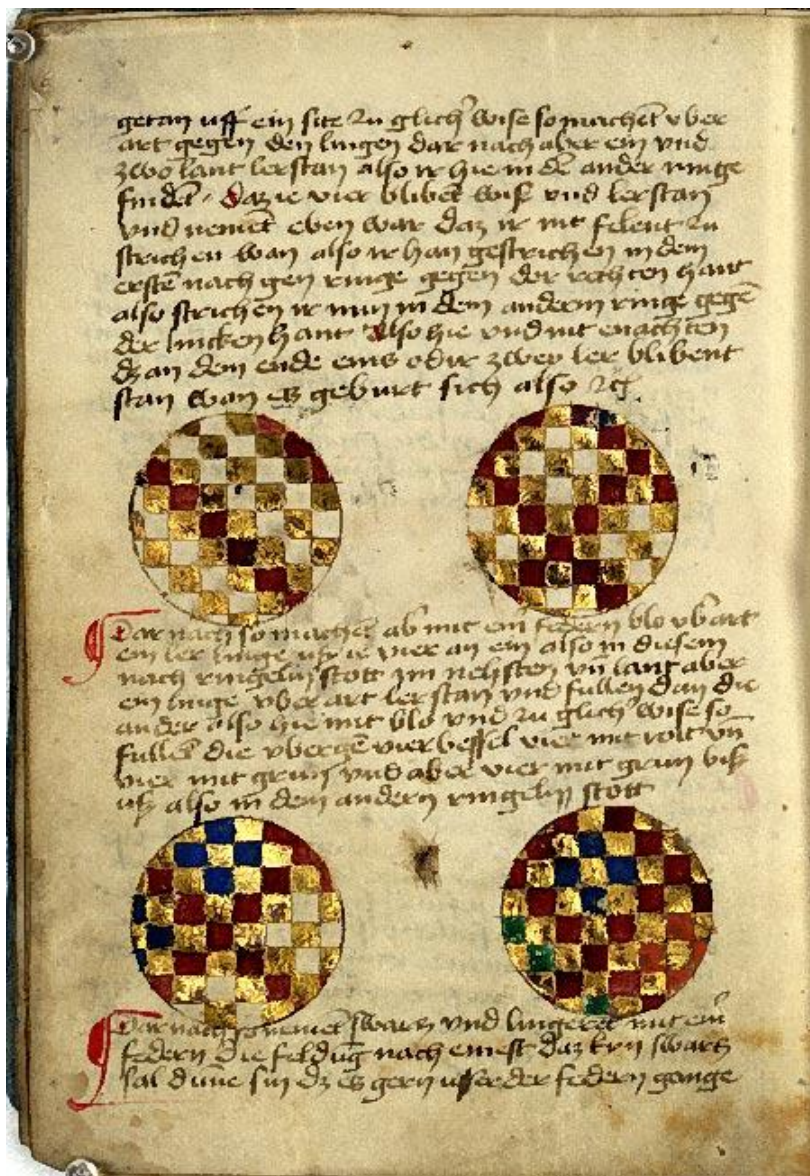 getan uff ein site zu glich' wise so machēt vber
art gegen den lingen dar nach aber ein vnd
zwo lant ler stan also ir hie in dē ander ringe
findēt · daz ie vier blibēt wiß vnd ler stan
vnd nemēt eben war daz ir nit felent zu
strichen wan also ir han gestrichen in dem
erstē nach gen ringe gegen der rechten hant
also strichen ir nun in dem andern ringe gegē
der lincken hant Also hie vnd nit enachten
dz an dem ende eins odir zwey ler blibent
stan wan es geburt sich also
Dar nach so machēt ab' mit ein' federn blo vb'art
ein ler linge vß ie vier an ein also in diesem
nach ringelin stott im nehsten vn̄ lant aber
ein linge vber art ler stan vnd fullen dan die
ander also hie mit blo vnd zu glich' wise so
fullēt die vbergē vier vier mit rott vn̄
vier mit grun vnd aber vier mit grun biß
uß also in dem andern ringelin stott
Dar nach so nemēt swartz vnd lingeret mit ein'
federn die feldūg nach einest daz swartz
sal dūne sin dz es gern usser der federn gange